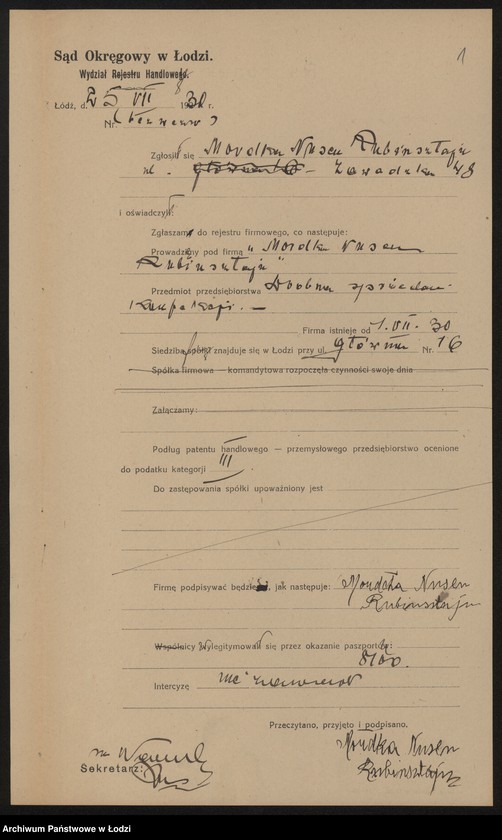 1
Sąd Okręgowy w Łodzi.
Wydział Rejestru Handlowego.
Łódź, d. 25 VII 1930 r.
Nr.
Zgłosił się Mordka Nusen Rubinsztajn
ul. Zawadzka 48
i oświadczył:
Zgłaszam do rejestru firmowego, co następuje:
Prowadzimy pod firmą "Mordka Nusen
Rubinsztajn"
Przedmiot przedsiębiorstwa Drobna sprzedaż
Firma istnieje od 1. VII. 30
Siedziba firmy znajduje się w Łodzi przy ul. Główna Nr. 16
Spółka firmowa — komandytowa rozpoczęła czynności swoje dnia
Załączamy:
Podług patentu handlowego — przemysłowego przedsiębiorstwo ocenione
do podatku kategorji III
Do zastępowania spółki upoważniony jest
Firmę podpisywać będzie, jak następuje: Mordka Nusen
Rubinsztajn
Wspólnicy wylegitymował się przez okazanie paszportu:
Intercyzę nie zawierał
Przeczytano, przyjęto i podpisano.
Mordka Nusen
Rubinsztajn
Sekretarz:
Archiwum Państwowe w Łodzi